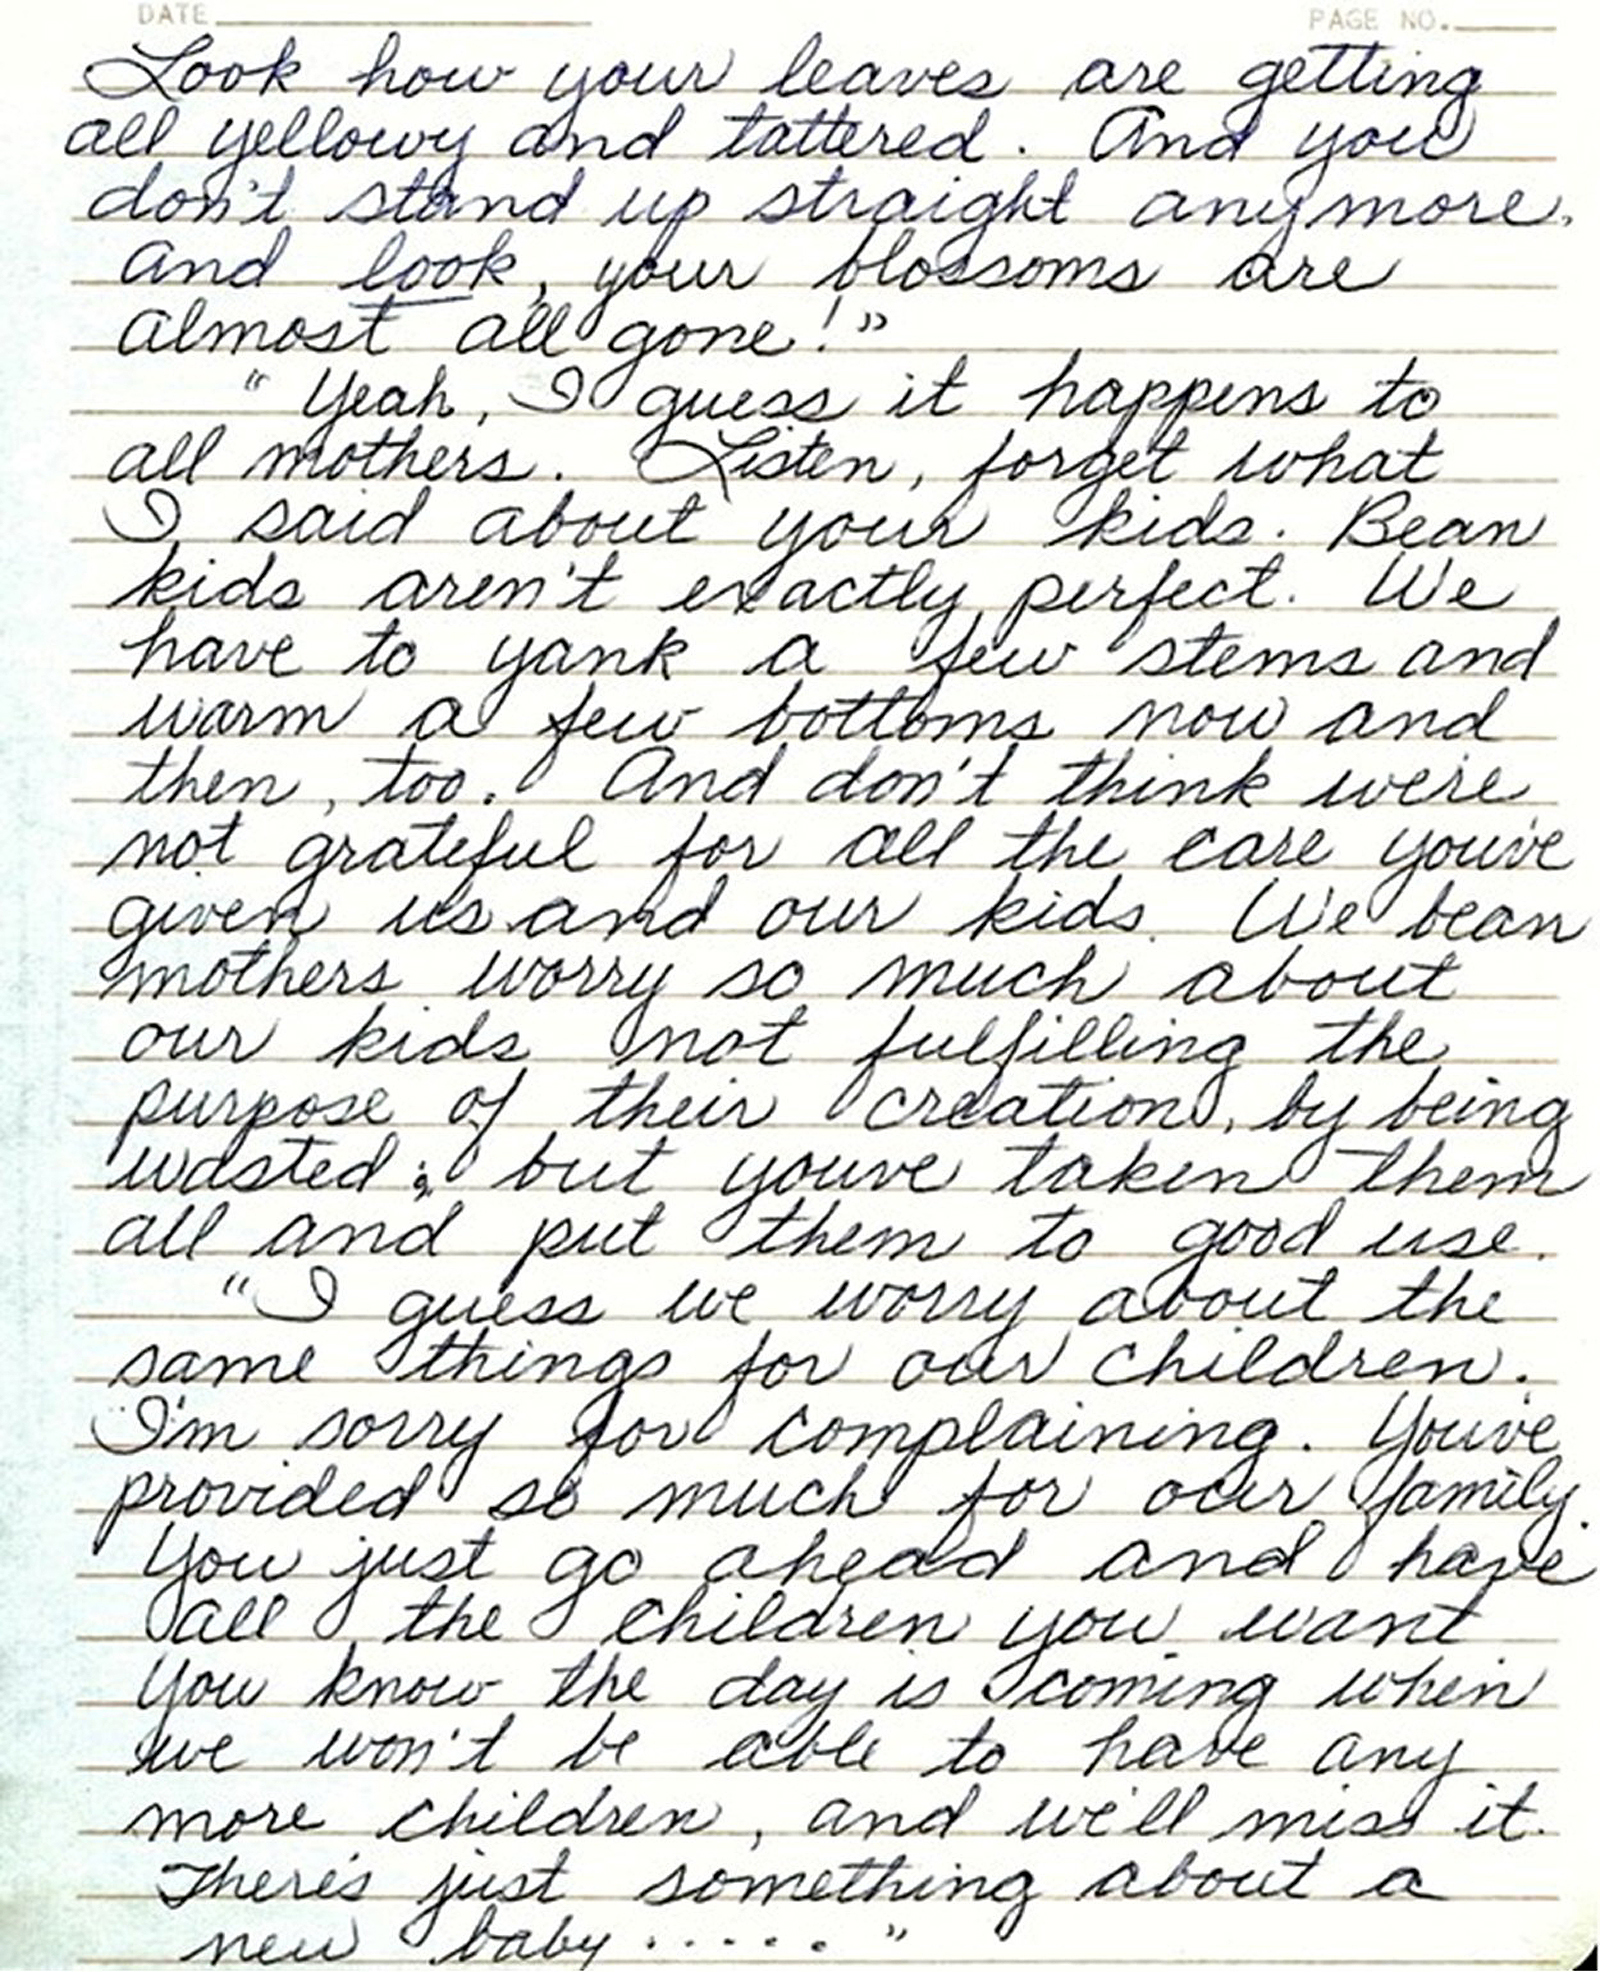 DATE PAGE NO.
Look how your leaves are getting
all yellowy and tattered. And you
don't stand up straight anymore.
And look, your blossoms are
almost all gone!"
"Yeah, I guess it happens to
all mothers. Listen, forget what
I said about your kids. Bean
kids aren't exactly perfect. We
have to yank a few stems and
warm a few bottoms now and
then, too. And don't think we're
not grateful for all the care you've
given us and our kids. We bean
mothers worry so much about
our kids not fulfilling the
purpose of their creation, by being
wasted; but youve taken them
all and put them to good use.
"I guess we worry about the
same things for our children.
I'm sorry for complaining. You've
provided so much for our family.
You just go ahead and have
all the children you want
You know the day is coming when
we won't be able to have any
more children, and we'll miss it.
There's just something about a
new baby....."